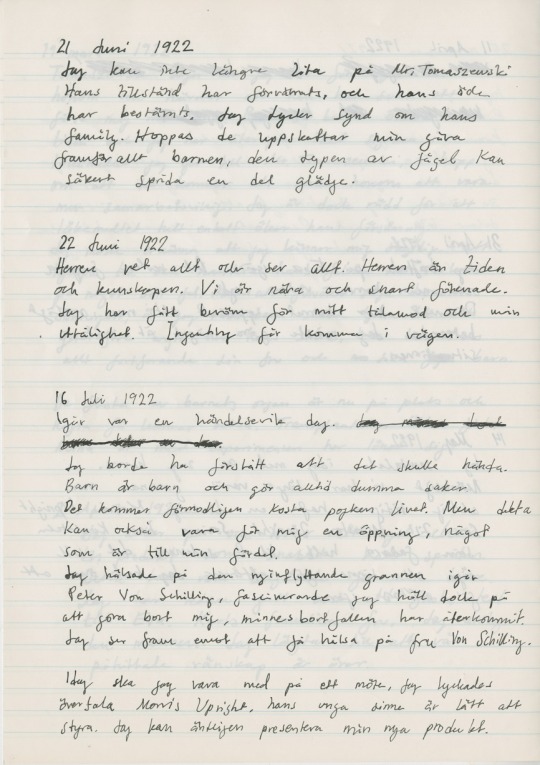 21 Juni 1922
Jag kan inte längre lita på Mrs Tomaszewski
Hans tillstånd har förvärrats, och hans öde
har bestämts. Jag tycker synd om hans
familj. Hoppas de uppskattar min gåva
framför allt barnen, den typen av fågel kan
säkert sprida en del glädje.
22 Juni 1922
Herren vet allt och ser allt. Herren är tiden
och kunskapen. Vi är nära och snart förenade.
Jag har fått beröm för mitt tålamod och min
uttålighet. Ingenting får komma i vägen.
16 Juli 1922
Igår var en händelserik dag.
Jag borde ha förstått att det skulle hända.
Barn är barn och gör alltid dumma saker
Det kommer förmodligen kosta pojken livet. Men detta
kan också vara för mig en öppning, något
som är till min fördel.
Jag hälsade på den nyinflyttande grannen igår
Peter Von Schilling, fascinerande jag höll dock på
att göra bort mig, minnesbortfallen har återkommit.
Jag ser fram emot att få hälsa på fru Von Schilling.
Idag ska jag vara med på ett möte, Jag lyckades
övertala Morris Upright, hans unga sinne är lätt att
styra. Jag kan äntligen presentera min nya produkt.